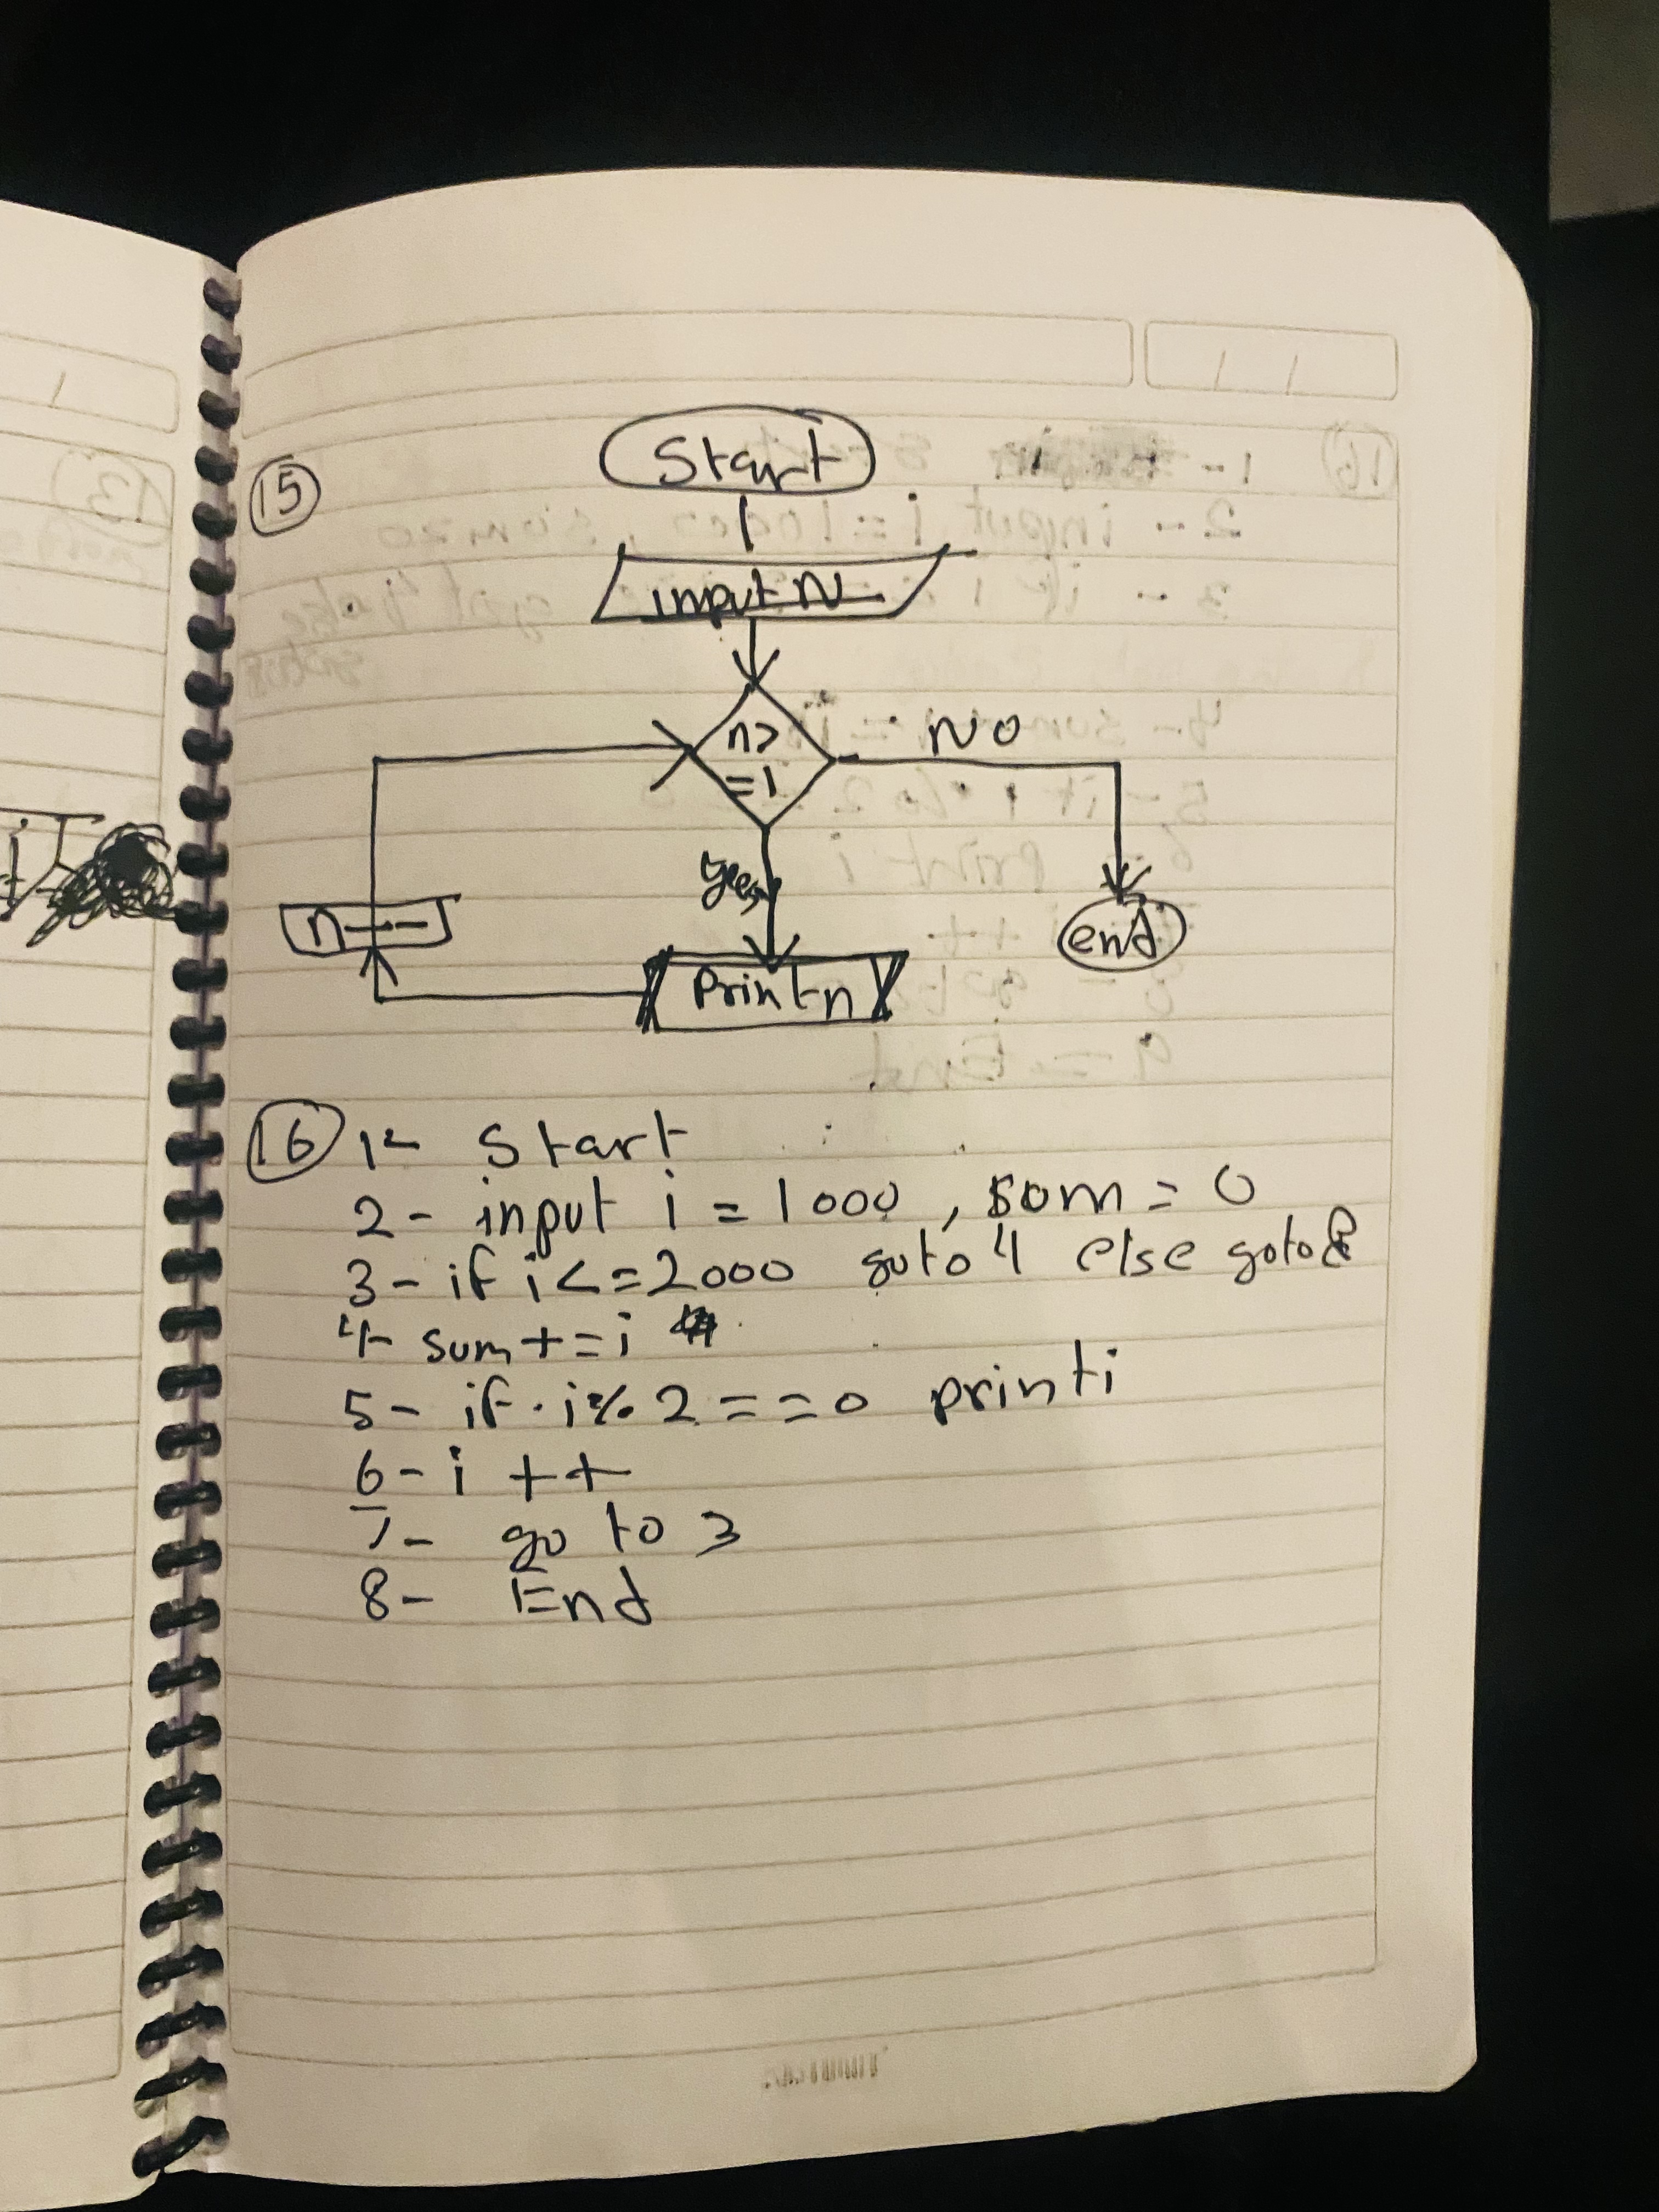 15
Start
input N
n>
=1
No
yes
n--
end
Print n
16 1- Start
2- input i = 1000 , som = 0
3- if i <= 2000 goto 4 else goto 8
4- sum += i
5- if i % 2 == 0 print i
6- i ++
7- go to 3
8- End